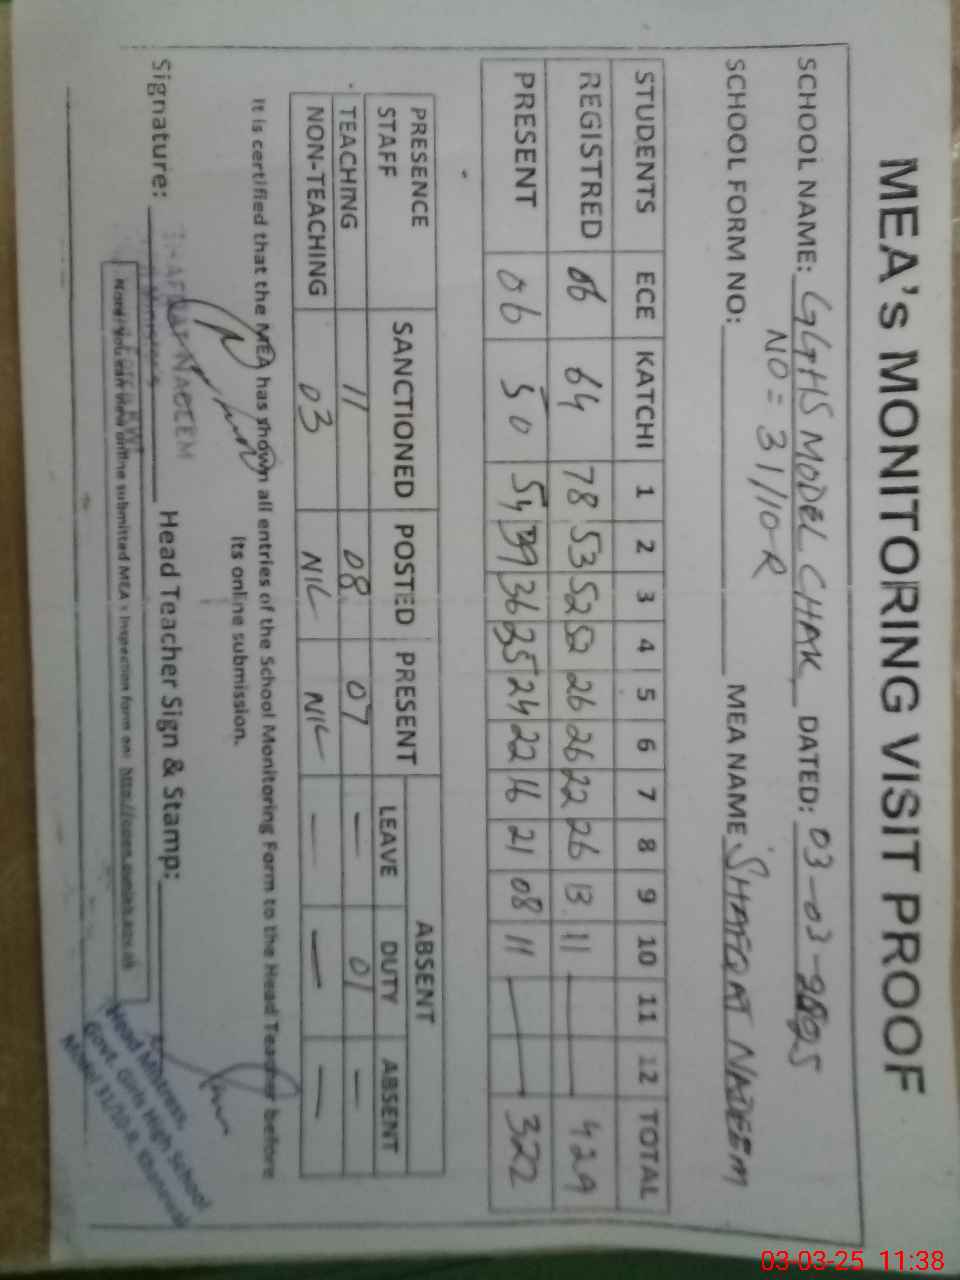 MEA's MONITORING VISIT PROOF
SCHOOL NAME: GGHS MODEL CHAK DATED: 03-03-2025
NO = 31/10-R
SCHOOL FORM NO: MEA NAME SHAFQAT NAEEM
STUDENTS ECE KATCHI 1 2 3 4 5 6 7 8 9 10 11 12 TOTAL
REGISTRED 06 64 78 53 52 52 26 26 22 26 13 11 — 429
PRESENT 06 50 54 39 36 35 24 22 16 21 08 11 — 322
PRESENCE STAFF SANCTIONED POSTED PRESENT ABSENT
LEAVE DUTY ABSENT
TEACHING 11 08 07 — 01 —
NON-TEACHING 03 NIL NIL — — —
It is certified that the MEA has shown all entries of the School Monitoring Form to the Head Teacher before
its online submission.
Signature: Head Teacher Sign & Stamp:
SHAFQAT NAEEM
Note: You can view online submitted MEA's Inspection Form on:
Head Mistress
Govt. Girls High School
Model 31/10-R Khanewal
03-03-25 11:38